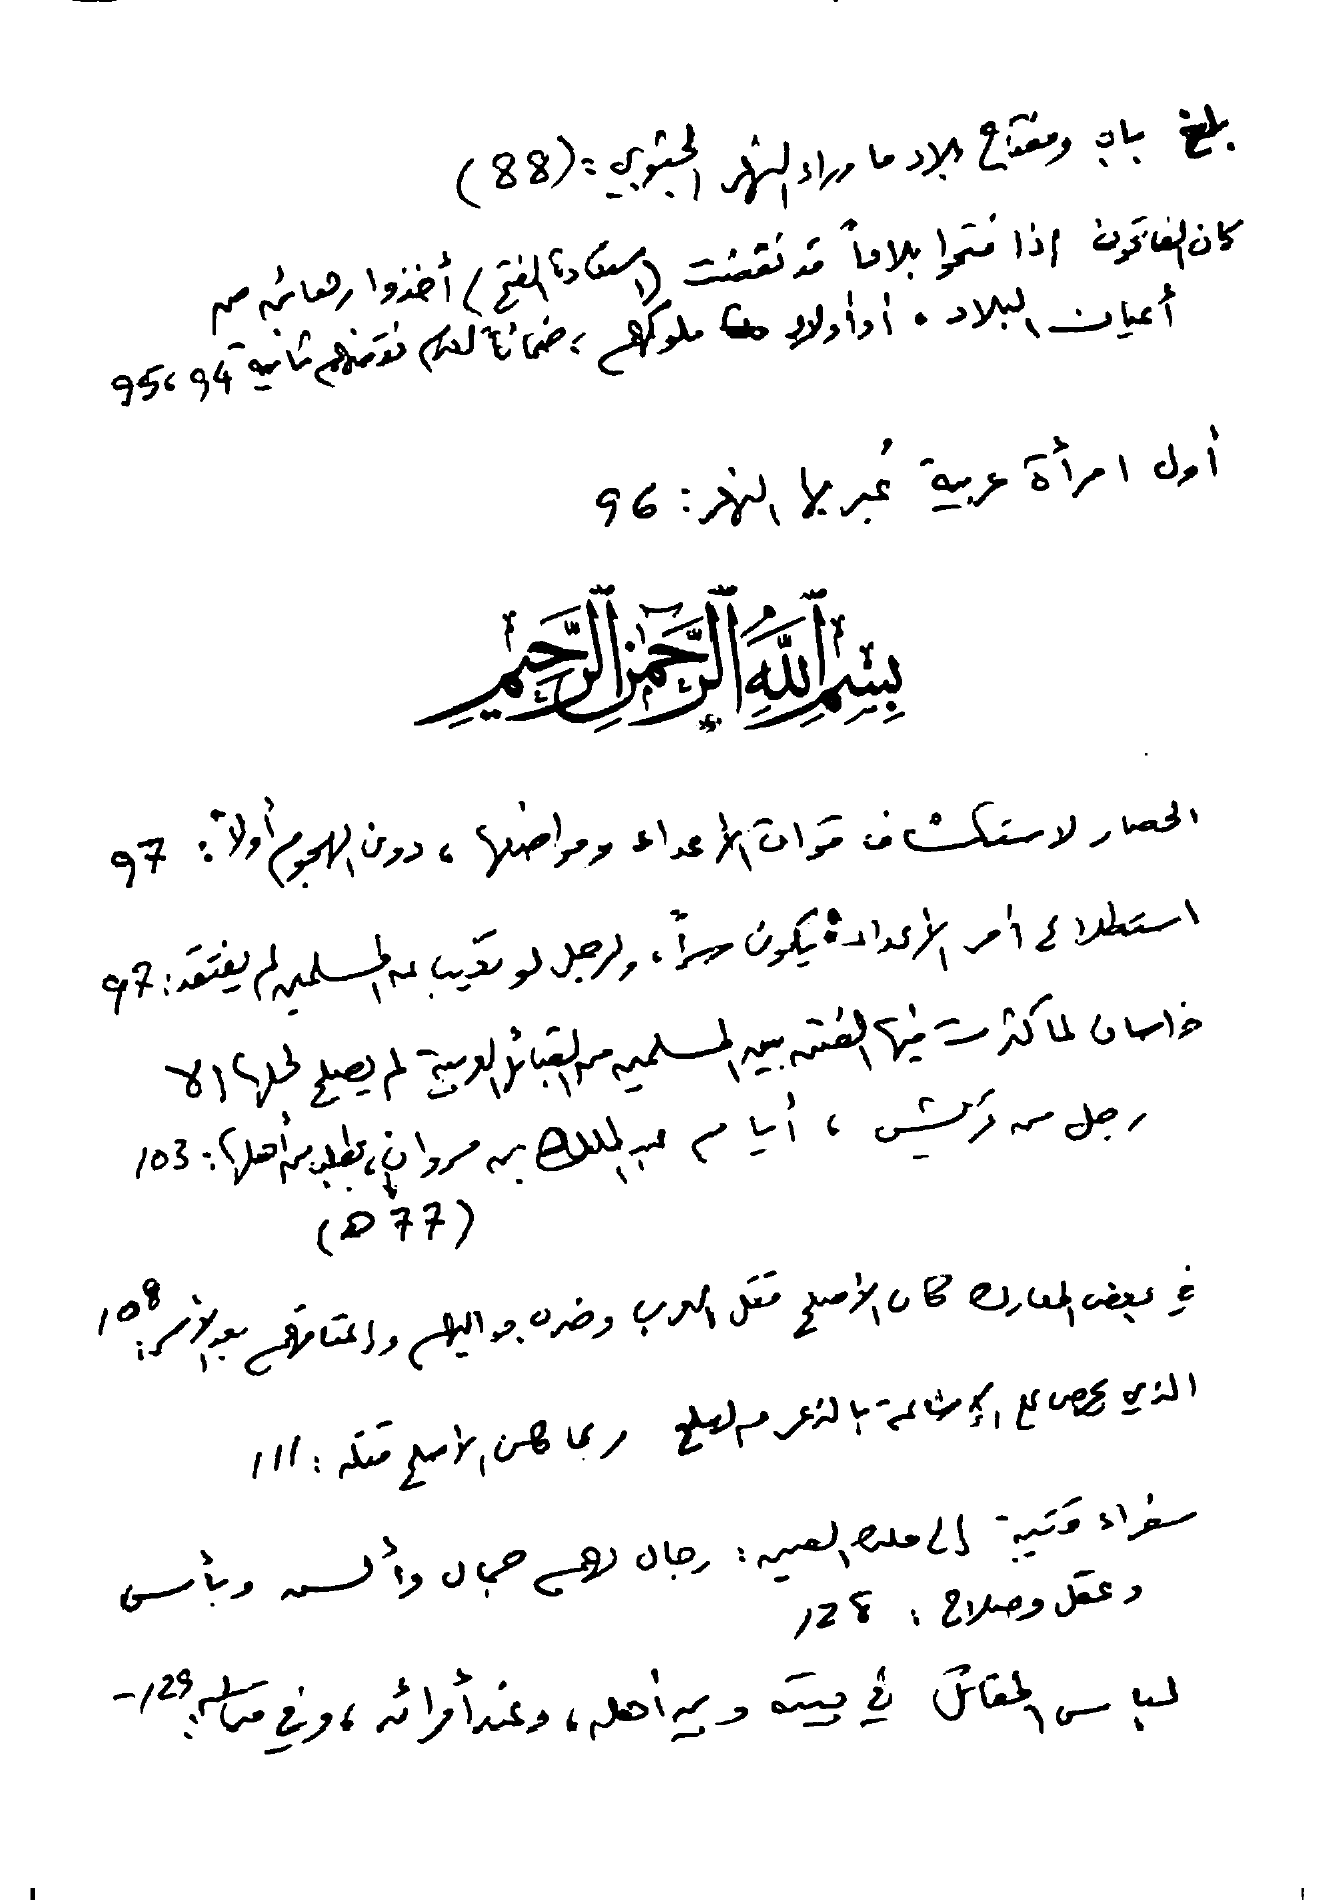 بلخ باب ومفتاح بلاد ما وراء النهر الجنوبي : (88)
كان الفاتحون إذا فتحوا بلاداً قد نقضت (استعادة الفتح) أخذوا رهائن من
أعيان البلاد . أو أولاد ملوكهم ، ضماناً لعدم نقضهم ثانية 94 ، 95
أول امرأة عربية عُبر بها النهر : 96
بسم الله الرحمن الرحيم
الحصار لاستكشاف قوات الأعداء ومواضعها ، دون الهجوم أولاً : 97
استطلاع أمر الأعداء : يكون سراً ، ولرجل لو تغيب عن المسلمين لم يفتقد : 97
خراسان لما كثرت فيها الفتن بين المسلمين من القبائل العربية لم يصلح لحلها إلا
رجل من قريش ، أيام عبد الملك بن مروان ، بطلب من أهلها : 103
(77 هـ)
في بعض المعارك كان الأصلح قتل العرب وضرب مواليهم وإعتاقهم بعد الأسر : 108
الذي يحرص على الإشاعة بالذعر من الصلح ربما كان الأصلح قتله : 111
سفراء قتيبة إلى ملك الصين : رجال لهم جمال وألسن وبأس
وعقل وصلاح : 128
لباس المقاتل في بيته وبين أهله ، وعند أمرائه ، وفي قتاله : 129 -